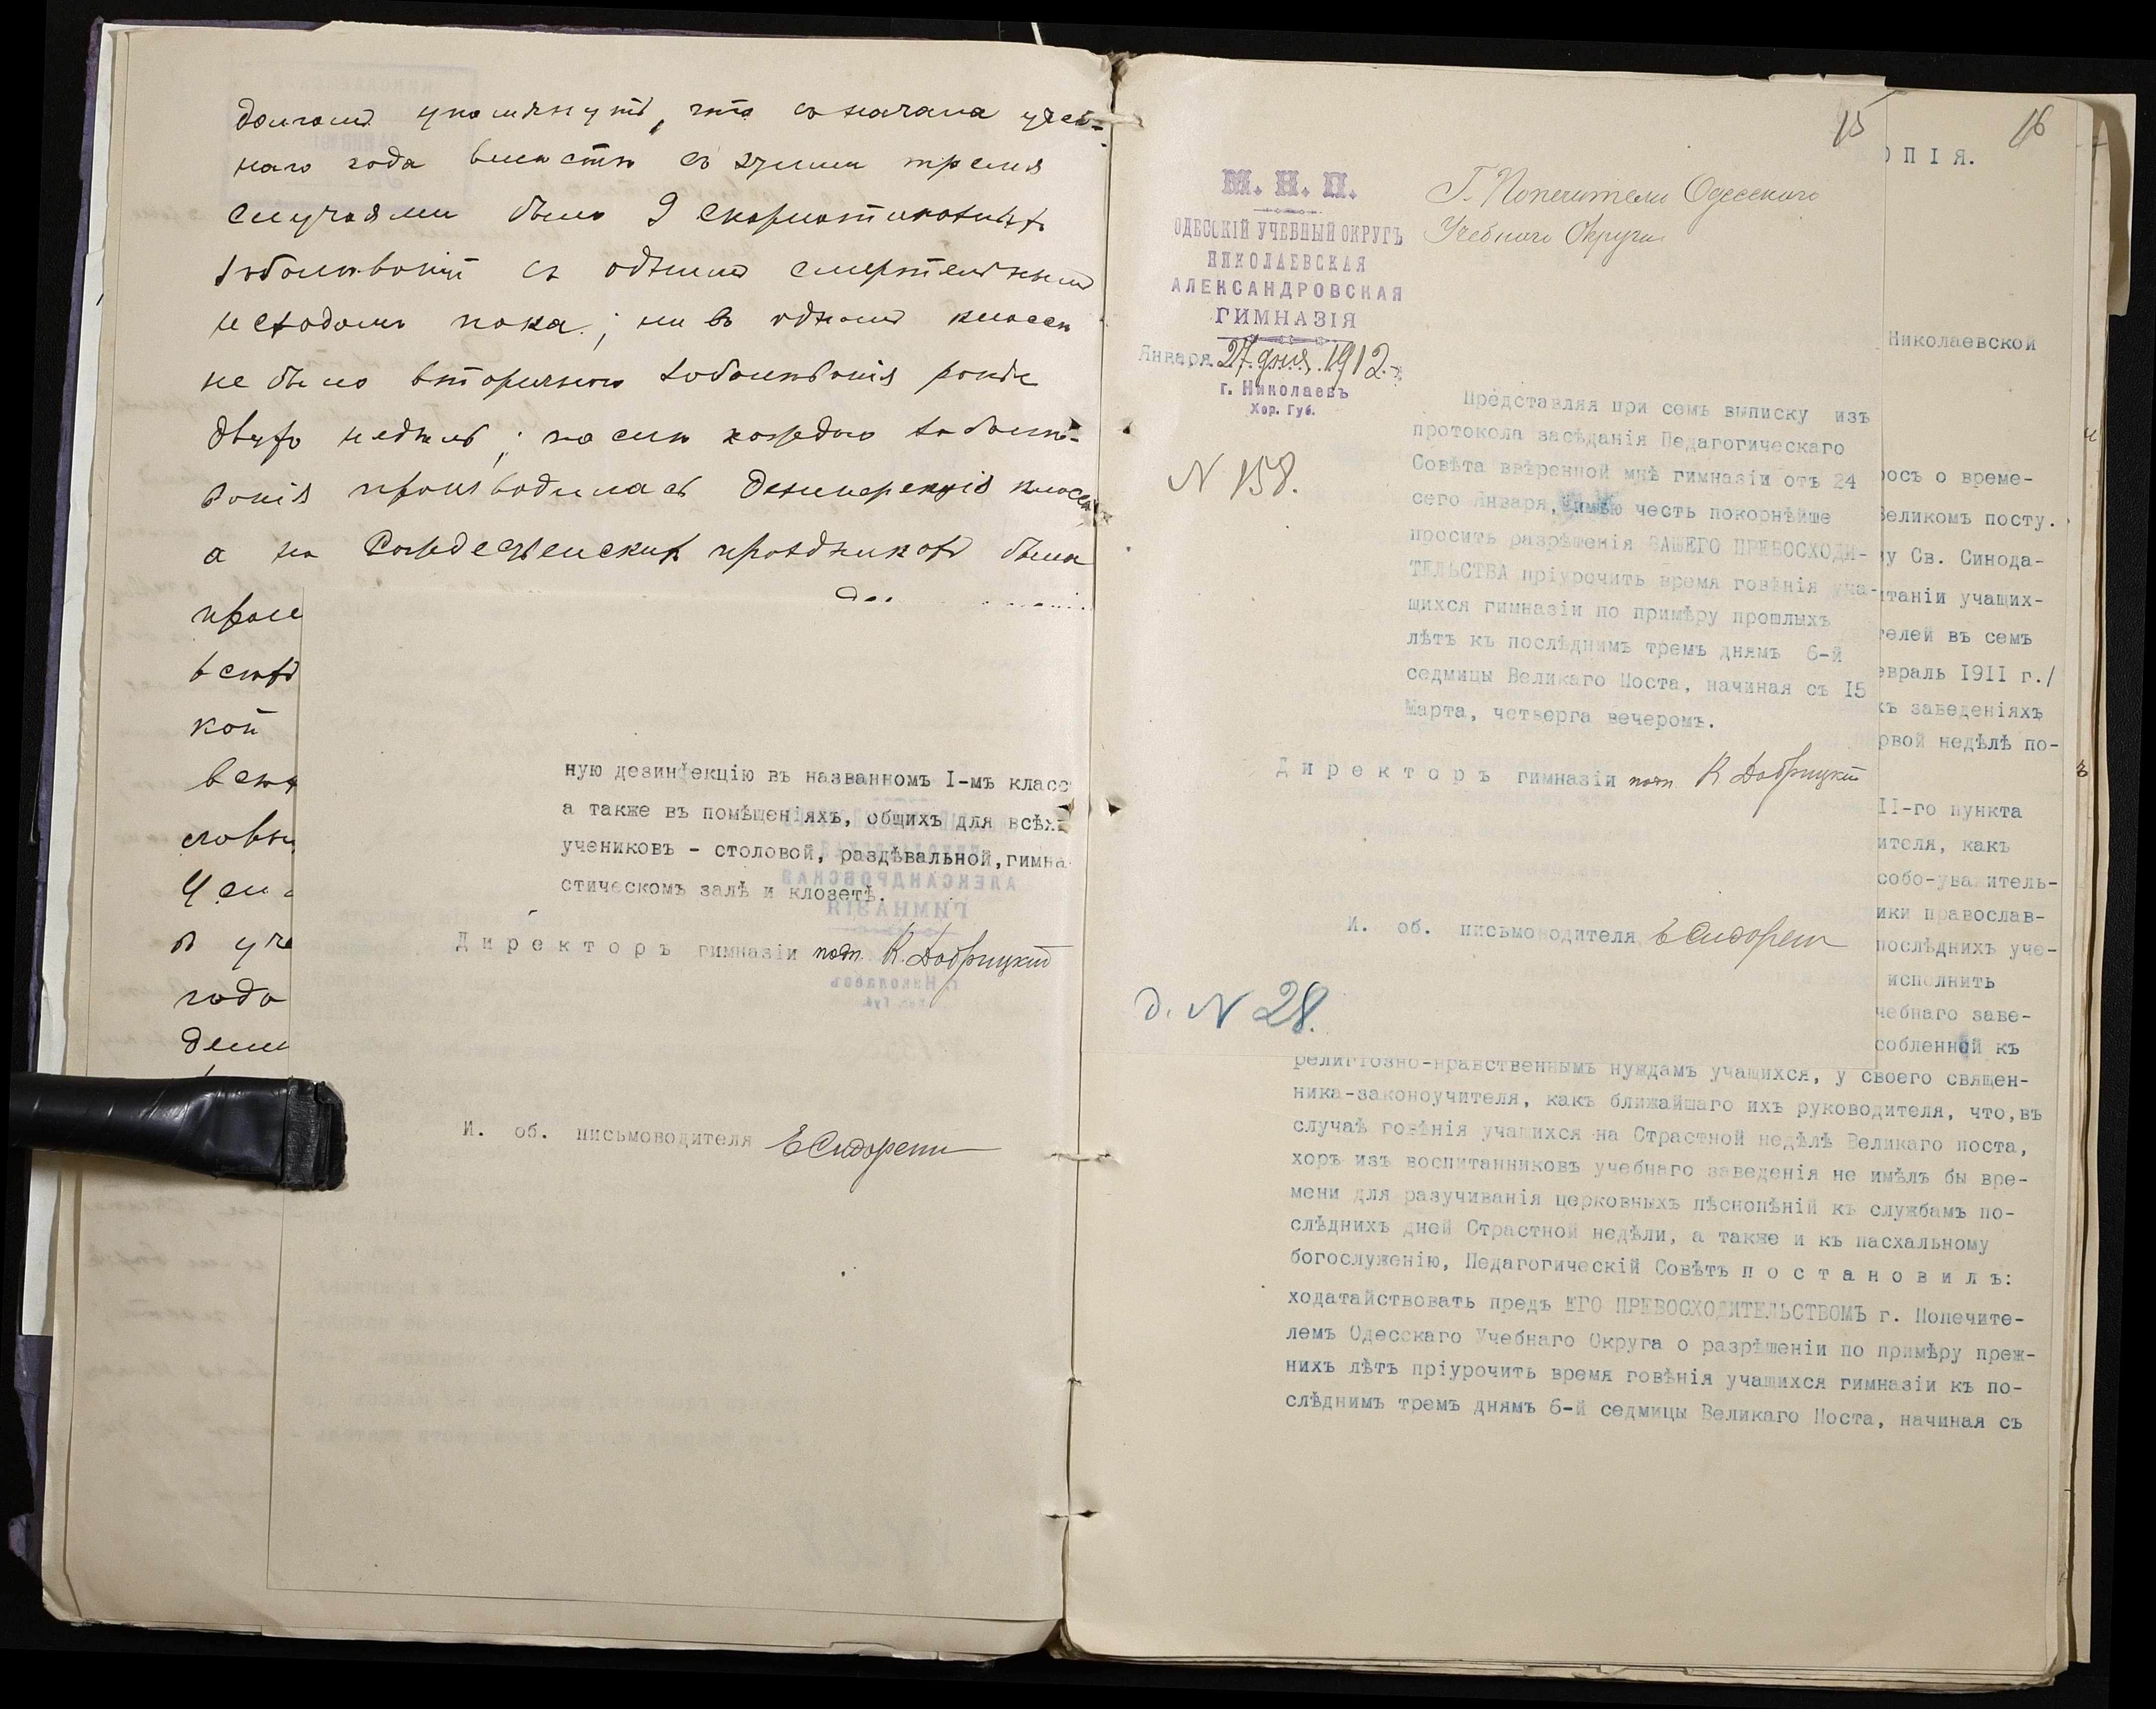 долгомъ упомянуть, что съ начала учеб-
наго года вместѣ съ этими тремя
случаями было 9 скарлатинозныхъ
заболѣваній съ однимъ смертельнымъ
исходомъ пока; ни въ одномъ классѣ
не было вторичнаго заболѣванія ранѣе
двухъ недѣль; послѣ каждаго заболѣ-
ванія производилась дезинфекція класса
а на Рождественскихъ праздникахъ была
кой
года
ную дезинфекцію въ названномъ I-мъ класс
а также въ помѣщеніяхъ, общихъ для всѣхъ
учениковъ - столовой, раздѣвальной, гимна
стическомъ залѣ и клозетѣ.
Директоръ гимназіи подп. К. Добрицкій
И. об. письмоводителя Е Сидорен
15
М. Н. П.
ОДЕССКІЙ УЧЕБНЫЙ ОКРУГЪ
НИКОЛАЕВСКАЯ
АЛЕКСАНДРОВСКАЯ
ГИМНАЗІЯ
Января 27 дня 1912
г. Николаевъ
Хер. Губ.
N 158.
Г. Попечителю Одесскаго
Учебнаго Округа
Представляя при семъ выписку изъ
протокола засѣданія Педагогическаго
Совѣта ввѣренной мнѣ гимназіи отъ 24
сего Января, имѣю честь покорнѣйше
просить разрѣшенія ВАШЕГО ПРЕВОСХОДИ-
ТЕЛЬСТВА пріурочить время говѣнія уча-
щихся гимназіи по примѣру прошлыхъ
лѣтъ къ послѣднимъ тремъ днямъ 6-й
седмицы Великаго Поста, начиная съ 15
Марта, четверга вечеромъ.
Директоръ гимназіи подп. К Добрицкій
И. об. письмоводителя Е Сидорен
д. N 28.
16
ОПІЯ.
Николаевской
росъ о време-
Великомъ посту.
зу Св. Синода-
итаніи учащих-
телей въ семъ
евраль 1911 г./
хъ заведеніяхъ
рвой недѣлѣ по-
II-го пункта
ителя, какъ
собо-уважитель-
ики православ-
послѣднихъ уче-
исполнить
чебнаго заве-
собленной къ
религіозно-нравственнымъ нуждамъ учащихся, у своего священ-
ника-законоучителя, какъ ближайшаго ихъ руководителя, что, въ
случаѣ говѣнія учащихся на Страстной недѣлѣ Великаго поста,
хоръ изъ воспитанниковъ учебнаго заведенія не имѣлъ бы вре-
мени для разучиванія церковныхъ пѣснопѣній къ службамъ по-
слѣднихъ дней Страстной недѣли, а также и къ пасхальному
богослуженію, Педагогическій Совѣтъ постановилъ:
ходатайствовать предъ ЕГО ПРЕВОСХОДИТЕЛЬСТВОМЪ г. Попечите-
лемъ Одесскаго Учебнаго Округа о разрѣшеніи по примѣру преж-
нихъ лѣтъ пріурочить время говѣнія учащихся гимназіи къ по-
слѣднимъ тремъ днямъ 6-й седмицы Великаго Поста, начиная съ